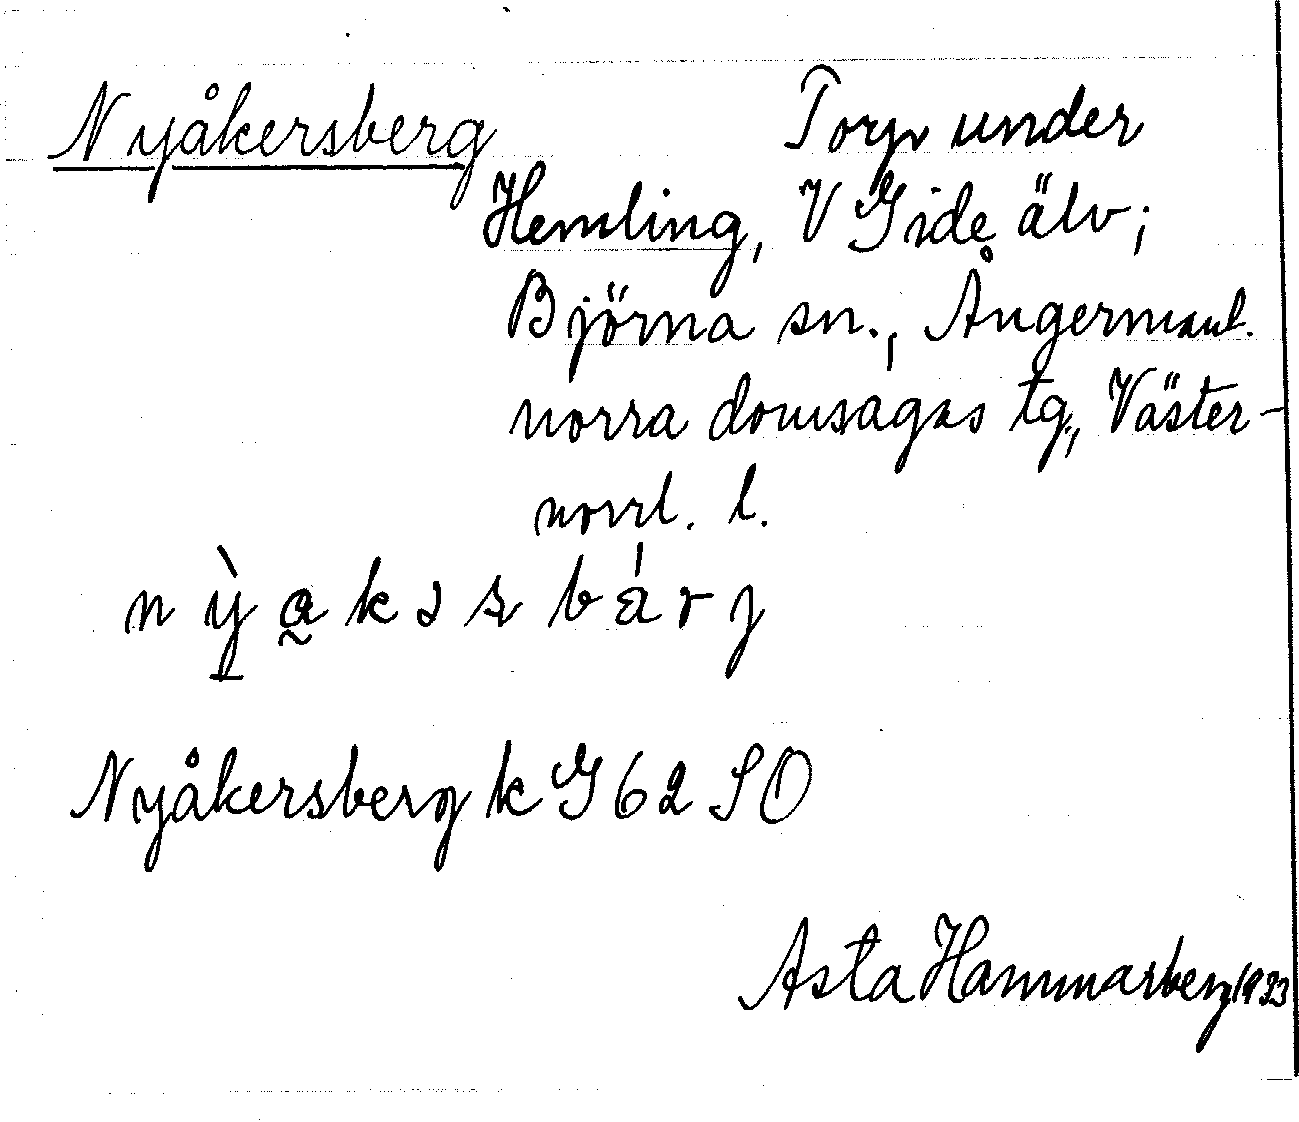 Nyåkersberg Torp under
Hemling, V Gide älv;
Björna sn., Ångermanl.
norra domsagas tg., Väster-
norrl. l.
Nyåkersberg k G 62 SO
Asta Hammarberg 1933